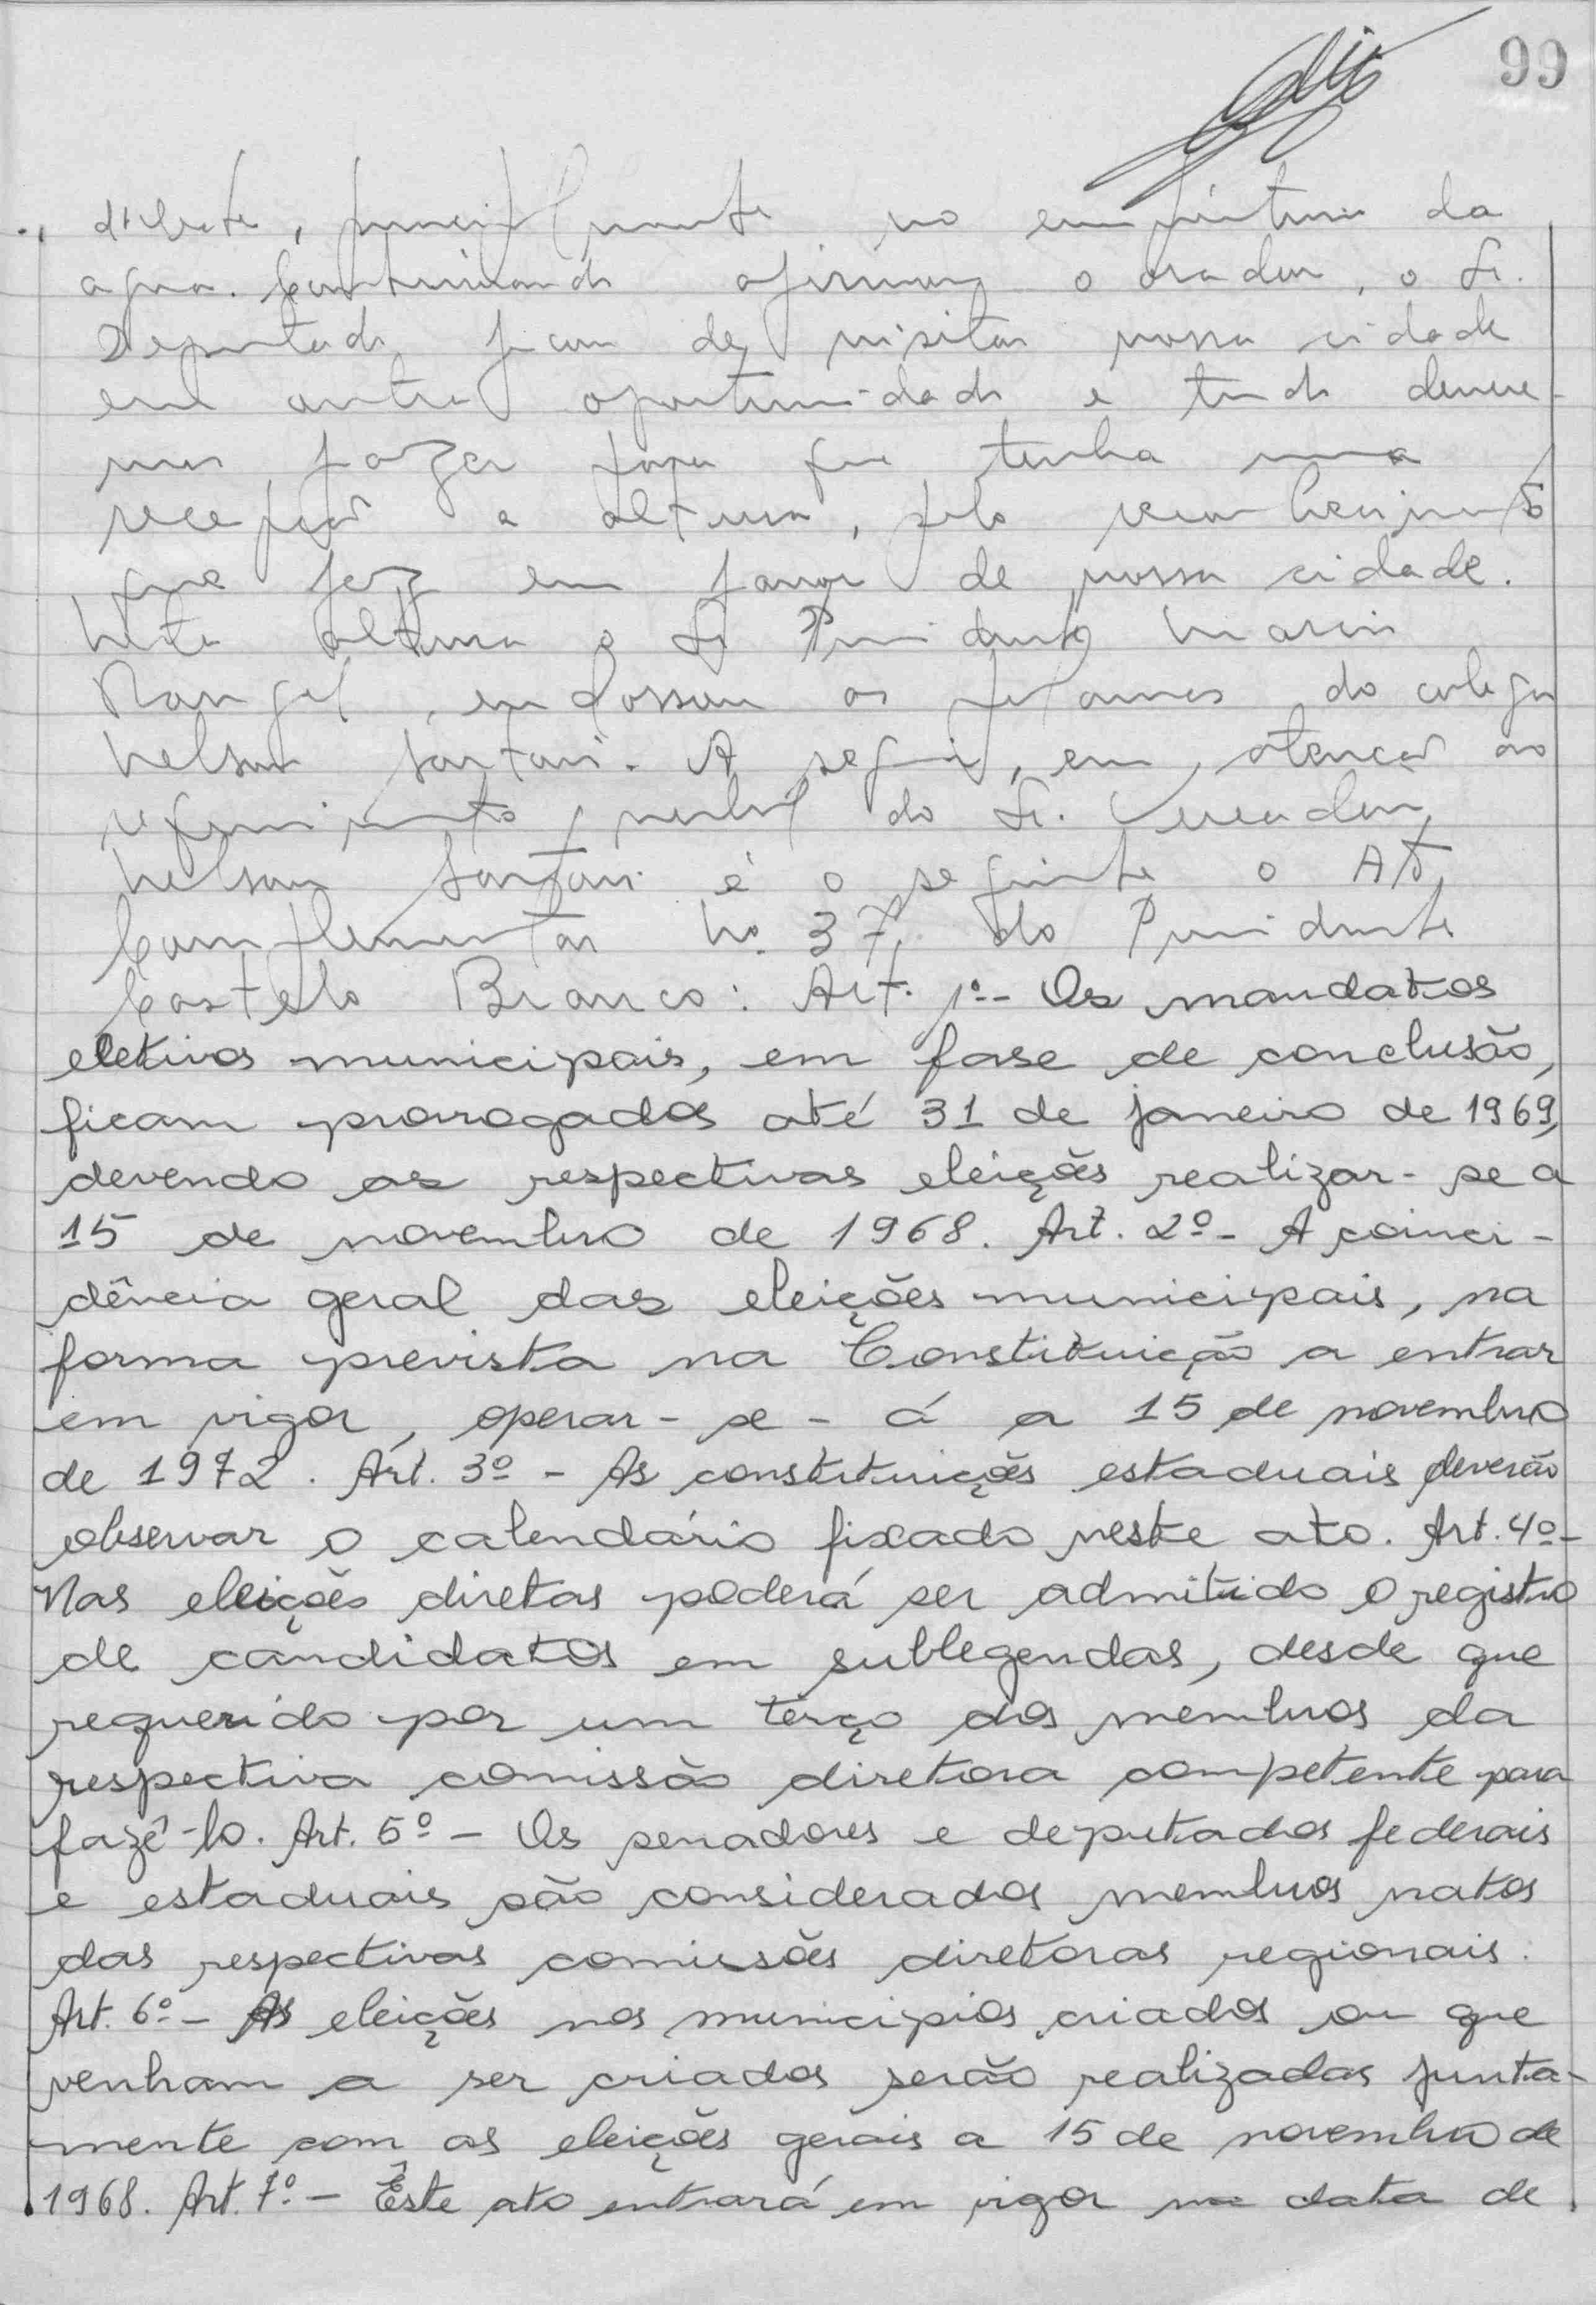 99
debate, principalmente no da
agua. Continuando afirmou o orador, o Sr.
Deputado ficou de visitar nossa cidade
em outra oportunidade e tudo deve-
mos fazer para que tenha uma
recepção a altura, pelo
que fez em favor de nossa cidade.
Nesta altura o Sr Presidente
Rangel, endossou as do colega
Nelson Santari. A seguir, em atenção ao
requerimento verbal do Sr. Vereador
Nelson Santari é o seguinte o Ato
Complementar No. 37, do Presidente
Castelo Branco: Art. 1º - Os mandatos
eletivos municipais, em fase de conclusão,
ficam prorrogados até 31 de janeiro de 1969,
devendo as respectivas eleições realizar-se a
15 de novembro de 1968. Art. 2º - A coinci-
dência geral das eleições municipais, na
forma prevista na Constituição a entrar
em vigor, operar-se-á a 15 de novembro
de 1972. Art. 3º - As constituições estaduais deverão
observar o calendário fixado neste ato. Art. 4º -
Nas eleições diretas poderá ser admitido o registro
de candidatos em sublegendas, desde que
requerido por um terço dos membros da
respectiva comissão diretora competente para
fazê-lo. Art. 5º - Os senadores e deputados federais
e estaduais são considerados membros natos
das respectivas comissões diretoras regionais.
Art. 6º - As eleições nos municipios criados ou que
venham a ser criados serão realizadas junta-
mente com as eleições gerais a 15 de novembro de
1968. Art. 7º - Êste ato entrará em vigor na data de